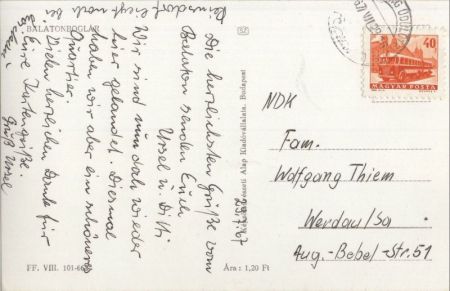 BALATONBOGLÁR
Die herzlichsten Grüße vom
Balaton senden Euch
Ursel u.Ditti
Wir sind nun doch wieder
hier gelandet. Diesmal
haben wir aber ein schöneres
Quartier.
Vielen herzlichen Dank für
Eure Kartengrüße.
Gruß Ursel
29.7.67
SZ
Képzőművészeti Alap Kiadóvállalata, Budapest
FF. VIII. 101-66
Ára: 1,20 Ft
40
MAGYAR POSTA
NDK
Fam.
Wolfgang Thiem
Werdau/Sa
Aug.-Bebel-Str. 51